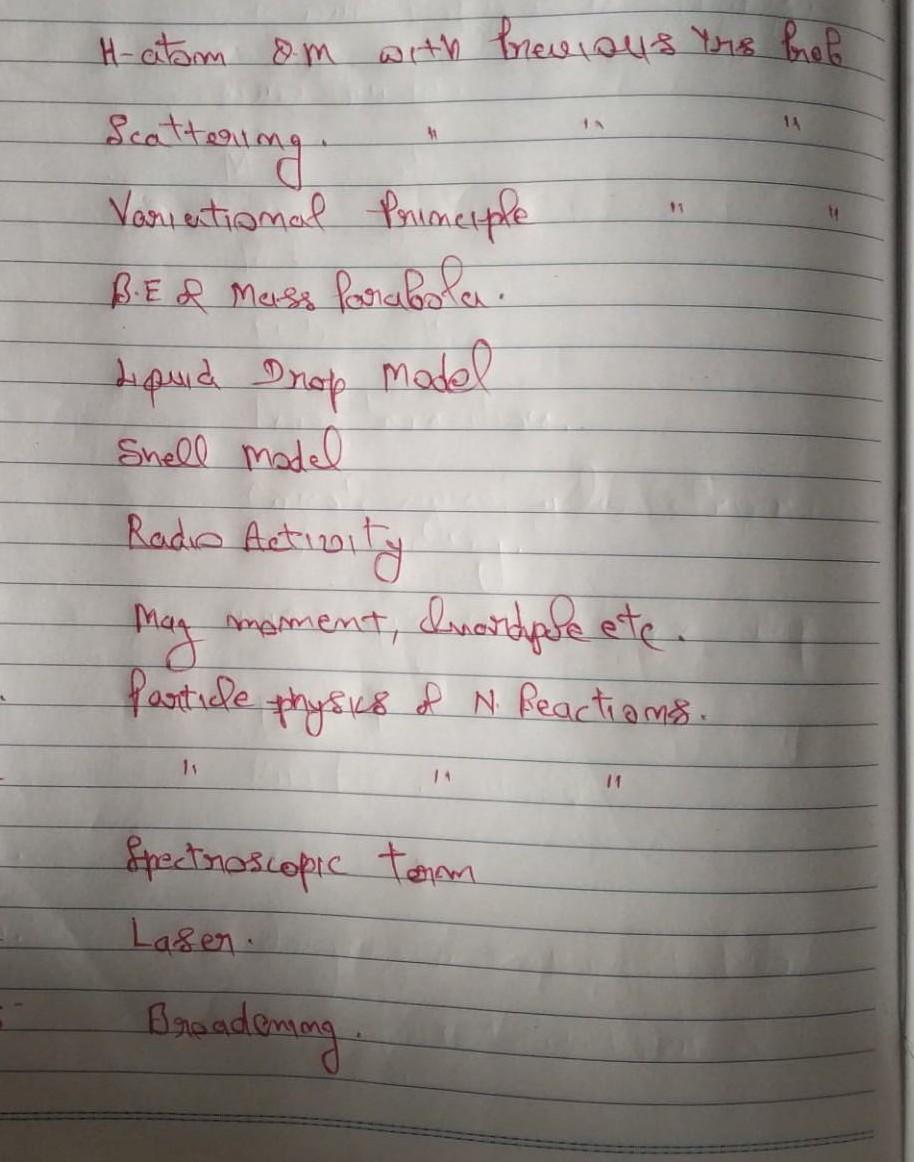 H-atom Q.M with Previous Yrs Prob
Scattering. " " "
Variational Principle " "
B.E & Mass Parabola.
Liquid Drop Model
Shell Model
Radio Activity
Mag moment, Quardpole etc.
Particle physics & N. Reactions.
" " "
Spectroscopic term
Laser.
Broadening.